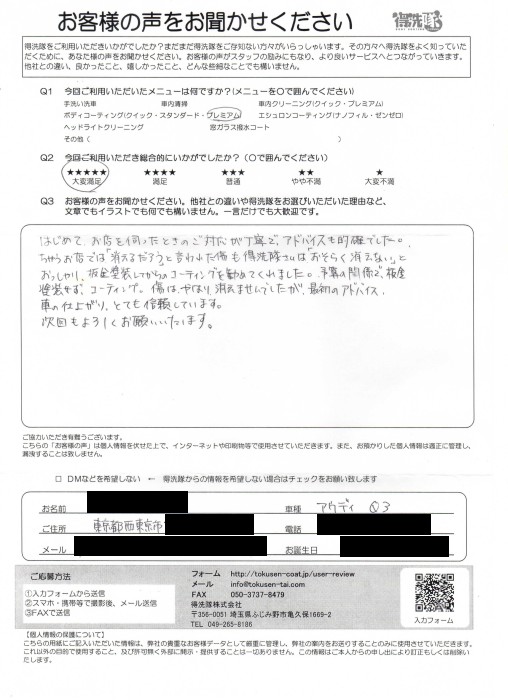 お客様の声をお聞かせください
得洗隊
得洗隊をご利用いただきいかがでしたか？まだまだ得洗隊をご存知ない方々がいらっしゃいます。その方々へ得洗隊をよく知っていた
だくために、あなた様の声をお聞かせください。お客様の声がスタッフの励みにもなり、より良いサービスへとつながっていきます。
他社との違い、良かったこと、嬉しかったこと、どんな些細なことでも構いません。
Q1 今回ご利用いただいたメニューは何ですか？(メニューを○で囲んでください)
手洗い洗車 車内清掃 車内クリーニング(クイック・プレミアム)
ボディコーティング(クイック・スタンダード・プレミアム) エシュロンコーティング(ナノフィル・ゼンゼロ)
ヘッドライトクリーニング 窓ガラス撥水コート
その他 ( )
Q2 今回ご利用いただき総合的にいかがでしたか？ (○で囲んでください)
★★★★★ ★★★★ ★★★ ★★ ★
大変満足 満足 普通 やや不満 大変不満
Q3 お客様の声をお聞かせください。他社との違いや得洗隊をお選びいただいた理由など、
文章でもイラストでも何でも構いません。一言だけでも大歓迎です。
はじめて、お店を伺ったときのご対応が丁寧で、アドバイスも的確でした。
お店では「消えるだろう」と言われた傷も得洗隊さんは「おそらく消えない」と
おっしゃり、板金塗装してからのコーティングを勧めてくれました。予算の関係で、板金
塗装せず、コーティング。傷は、やはり消えませんでしたが、最初のアドバイス、
車の仕上がり、とても信頼しています。
次回もよろしくお願いいたします。
ご協力いただき有難うございます。
こちらの「お客様の声」は個人情報を伏せた上で、インターネットや印刷物等で使用させていただきます。また、お預かりした個人情報は適正に管理し、
漏洩することは致しません。
□ DMなどを希望しない ← 得洗隊からの情報を希望しない場合はチェックをお願い致します
お名前 車種 アウディ Q3
ご住所 東京都西東京市 電話
メール お誕生日
ご応募方法
①入力フォームから送信
②スマホ・携帯等で撮影後、メール送信
③FAXで送信
フォーム http://tokusen-coat.jp/user-review
メール info@tokusen-tai.com
FAX 050-3737-8479
得洗隊株式会社
〒356-0051 埼玉県ふじみ野市亀久保1669-2
TEL 049-265-8186
入力フォーム
【個人情報の保護について】
こちらの用紙にご記入いただいた情報は、弊社の貴重なお客様データとして厳重に管理し、弊社の案内をお送りすることのみに使用させていただきます。
これ以外の目的で使用すること、及び許可無く外部に開示・提供することは一切ありません。この情報はご本人からの申し出により訂正もしくは削除い
たします。